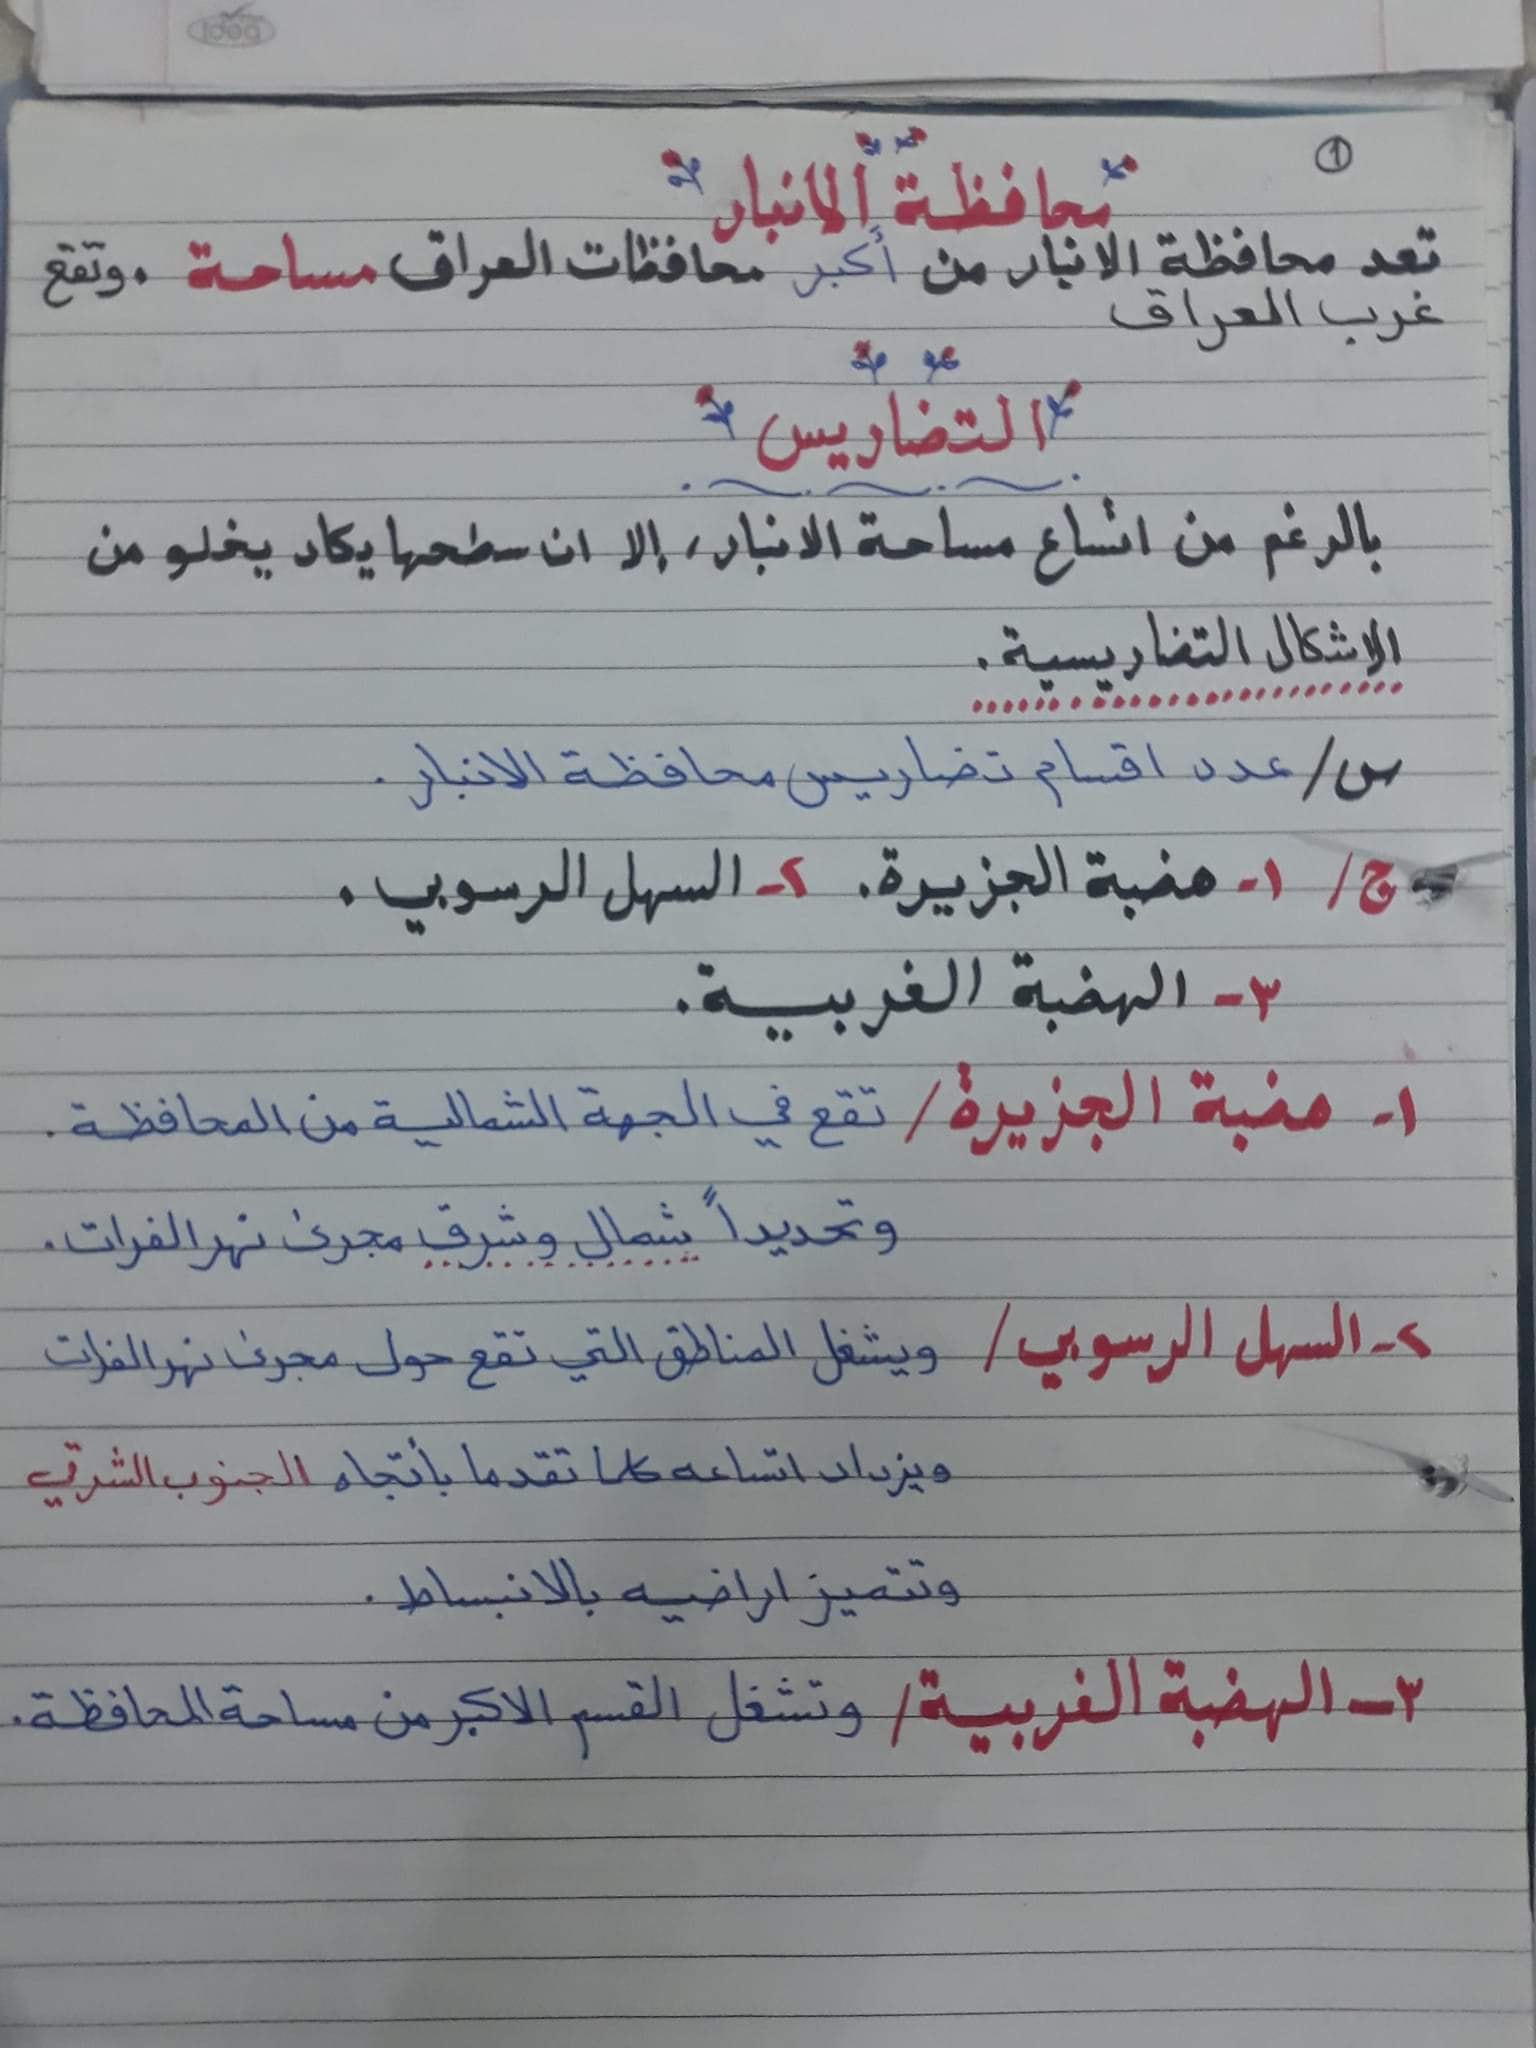 idea
①
محافظة الانبار
تعد محافظة الانبار من أكبر محافظات العراق مساحة . وتقع
غرب العراق
التضاريس
بالرغم من اتساع مساحة الانبار، إلا ان سطحها يكاد يخلو من
الاشكال التضاريسية .
س/ عدد اقسام تضاريس محافظة الانبار .
ج/ ١- هضبة الجزيرة . ٢- السهل الرسوبي .
٣- الهضبة الغربية .
١- هضبة الجزيرة/ تقع في الجهة الشمالية من المحافظة .
وتحديداً شمال وشرق مجرى نهر الفرات .
٢- السهل الرسوبي/ ويشغل المناطق التي تقع حول مجرى نهر الفرات
ويزداد اتساعه كلما تقدما بأتجاه الجنوب الشرقي
وتتميز اراضيه بالانبساط .
٣- الهضبة الغربية/ وتشغل القسم الاكبر من مساحة المحافظة .